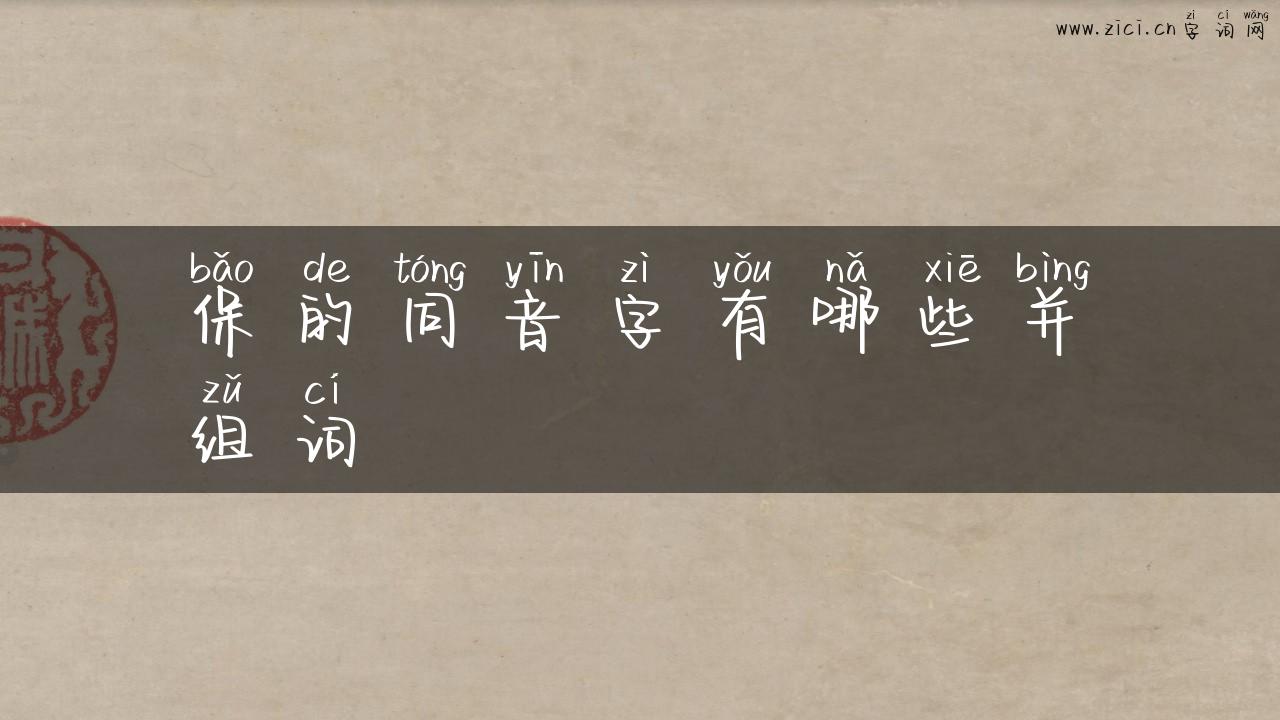 zì cí wǎng
www.zici.cn 字 词 网
bǎo de tóng yīn zì yǒu nǎ xiē bìng
保 的 同 音 字 有 哪 些 并
zǔ cí
组 词